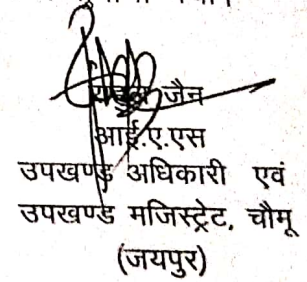 जैन
आई.ए.एस
उपखण्ड अधिकारी एवं
उपखण्ड मजिस्ट्रेट, चौमू
(जयपुर)